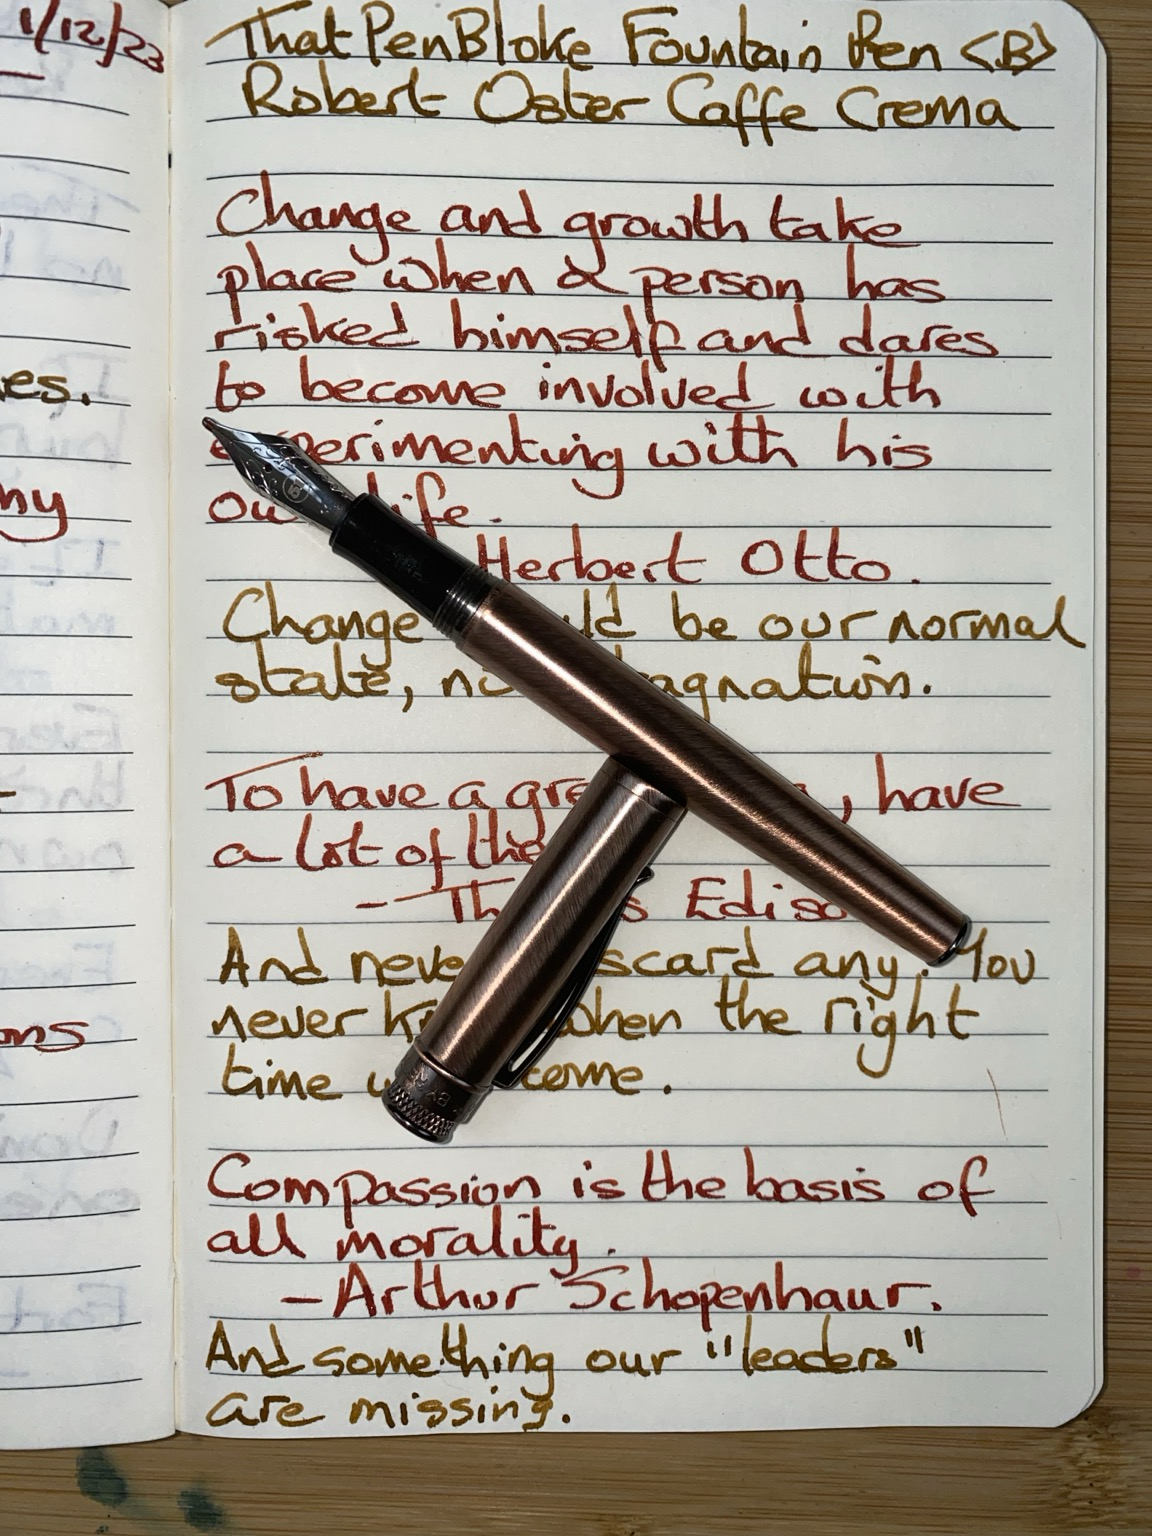 1/12/23
es.
ny
ons
ThatPenBloke Fountain Pen <B>
Robert Oster Caffe Crema
Change and growth take
place when a person has
risked himself and dares
to become involved with
experimenting with his
life.
Herbert Otto.
Change be our normal
state,
To have a , have
a lot of
Edison
And any. You
never when the right
time come.
Compassion is the basis of
all morality.
- Arthur Schopenhaur.
And something our "leaders"
are missing.